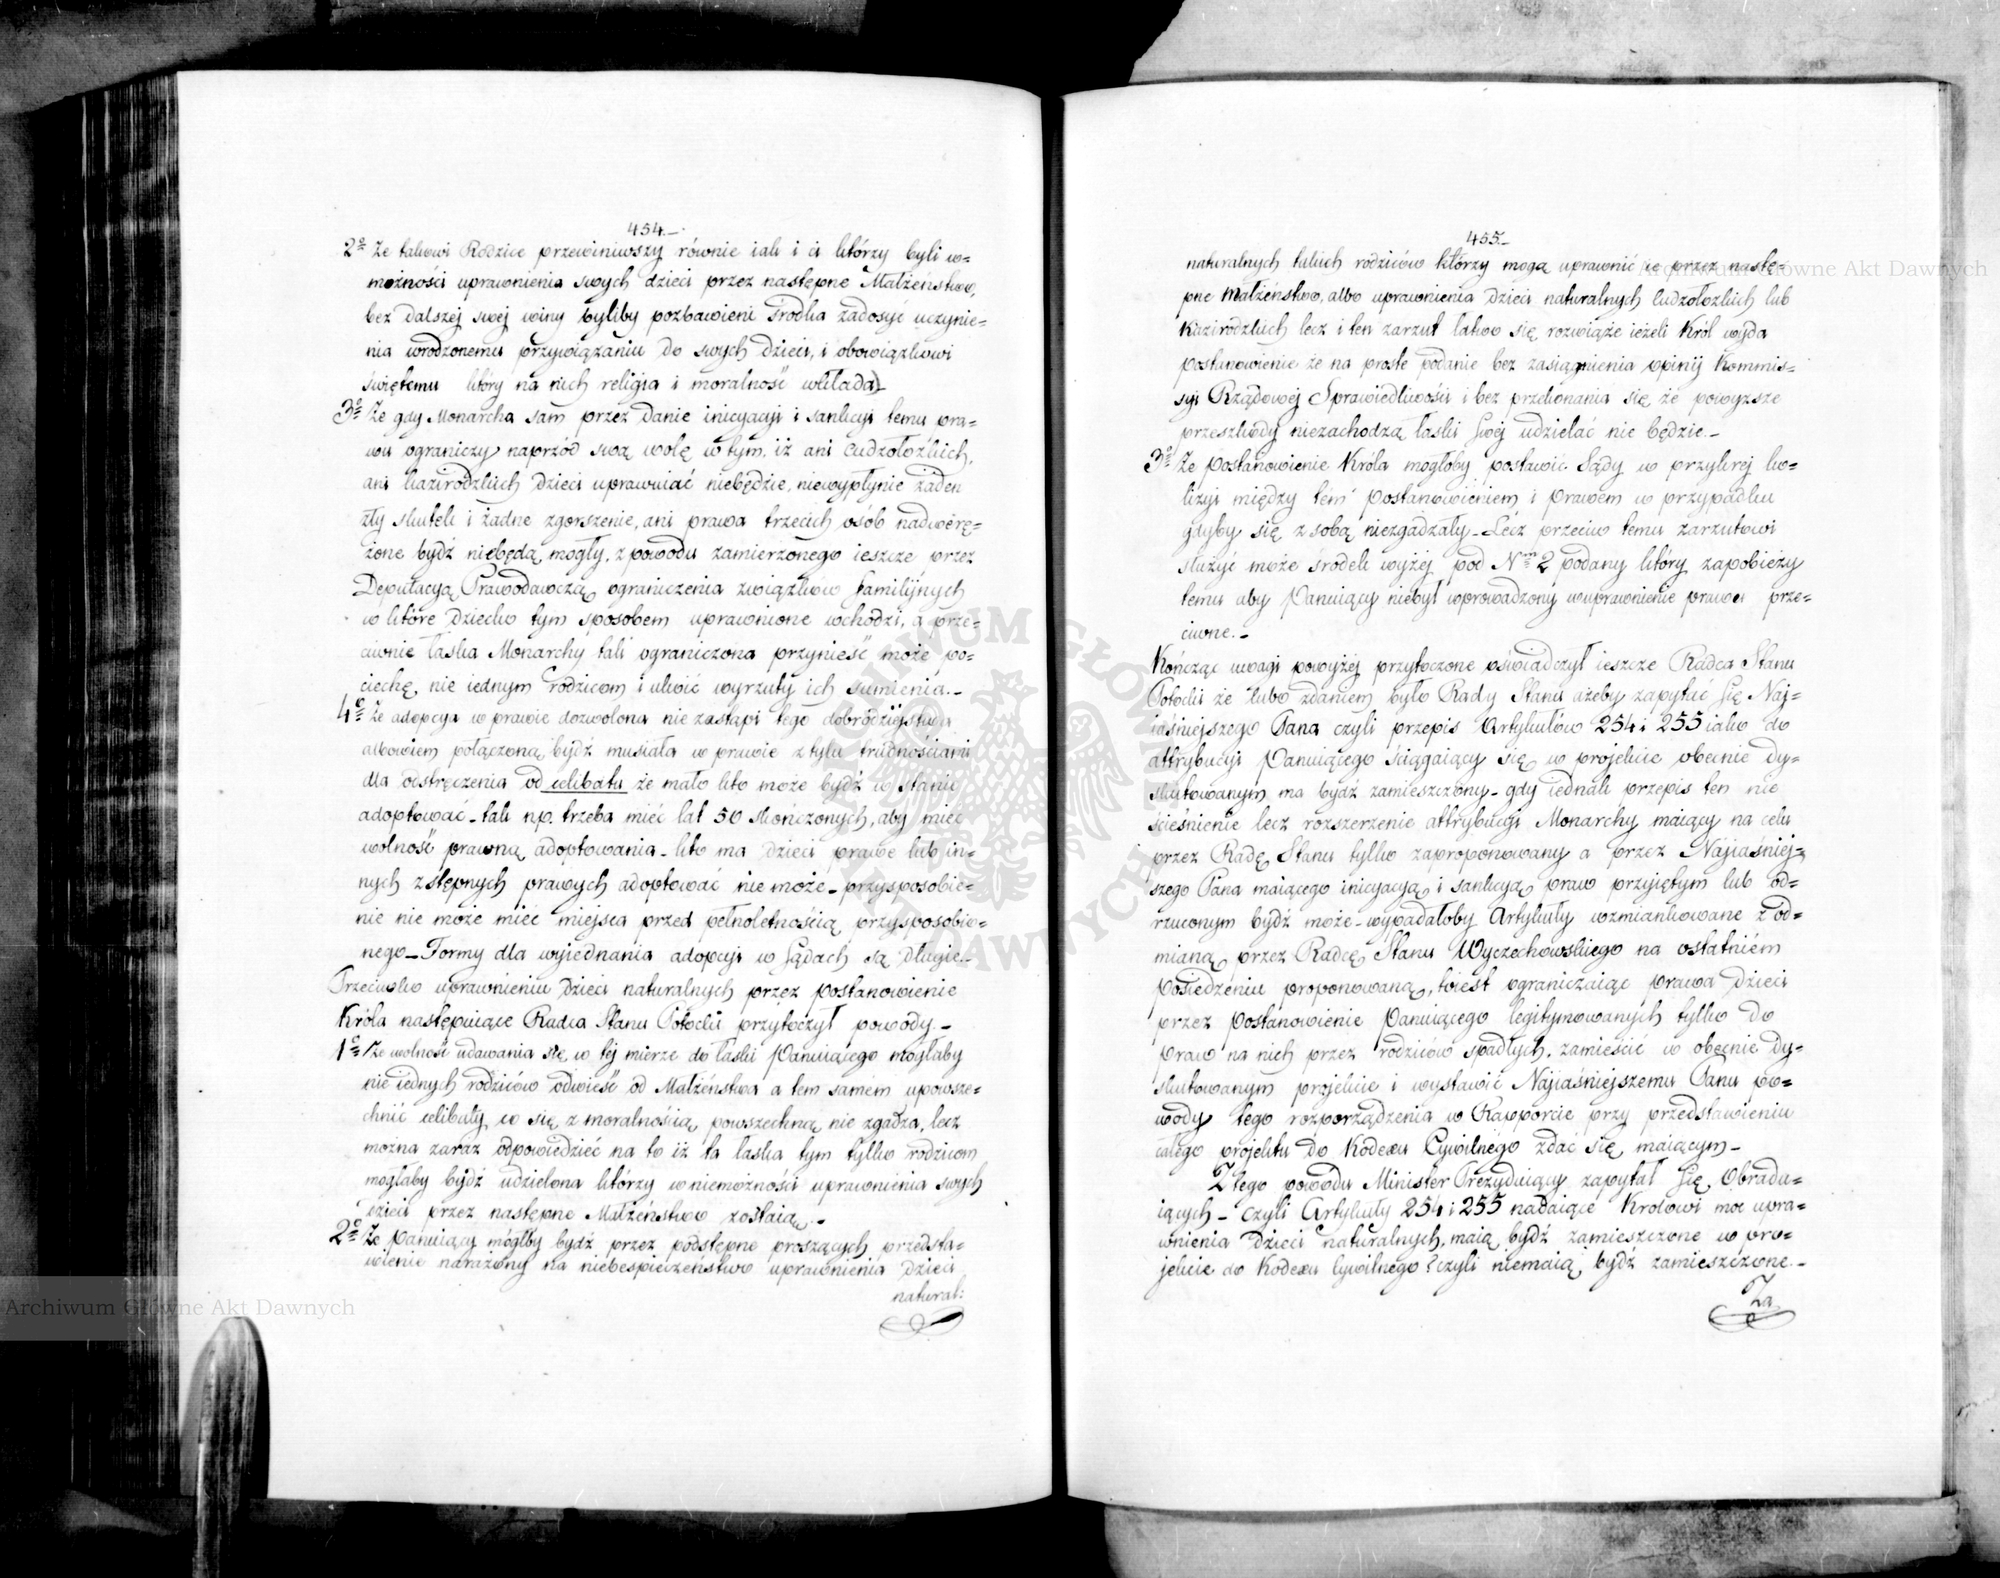 454.
2o Że takowi Rodzice przewiniwszy równie iak i ci którzy byli w=
możności uprawnienia swych dzieci przez następne Małżeństwo,
bez dalszej swej winy byliby pozbawieni źródła zadosyć uczynie=
nia wrodzonemu przywiązaniu do swych dzieci, i obowiązkowi
świętemu który na nich religia i moralność wkłada.
3o Że gdy Monarcha sam przez danie inicyacyi i sankcyi temu pra=
wu ograniczy naprzód swą wolę w tym, iż ani cudzołożkich,
ani kazirodzkich dzieci uprawniać niebędzie, niewypłynie żaden
zły skutek i żadne zgorszenie, ani prawa trzecich osób nadwerę=
żone bydź niebędą mogły, z powodu zamierzonego ieszcze przez
Deputacyą Prawodawczą ograniczenia związków familijnych
w które dziecko tym sposobem uprawnione wchodzi, a prze=
ciwnie łaska Monarchy tak ograniczona przynieść może po=
ciechę, nie iednym rodzicom i ulwić wyrzuty ich sumienia._
4o Że adopcya w prawie dozwolona nie zastąpi tego dobrodziejstwa
albowiem połączoną bydź musiała w prawie z tylu trudnościami
dla odstręczenia od celibatu że mało kto może bydź w stanie
adoptować_ tak np. trzeba mieć lat 50 skończonych, aby mieć
wolność prawną adoptowania_ kto ma dzieci prawe lub in=
nych zstępnych prawych adoptować nie może_ przysposobie=
nie nie może mieć miejsca przed pełnoletnością przysposobio=
nego_ Formy dla wyiednania adopcyi w Sądach są długie._
Przeciwko uprawnieniu dzieci naturalnych przez postanowienie
Króla następuiące Radca Stanu Potocki przytoczył powody._
1o Że wolność udawania się w tej mierze do łaski Panuiącego mogłaby
nie iednych rodziców odwieść od Małżeństwa a tem samém upowsze=
chnić celibaty co się z moralnością powszechną nie zgadza, lecz
można zaraz odpowiedzieć na to iż ta łaska tym tylko rodzicom
mogłaby bydź udzielona którzy w niemożności uprawnienia swych
dzieci przez następne Małżeństwo zostaią._
2o Że Panuiący mógłby bydź przez podstępne proszących przedsta=
wienie narażony na niebespieczeństwo uprawnienia dzieci
natural:
455.
naturalnych takich rodziców którzy mogą uprawnić ie przez nastę=
pne Małżeństwo, albo uprawnienia dzieci naturalnych cudzołozkich lub
Kazirodzkich lecz i ten zarzut łatwo się rozwiąże ieżeli Król wyda
postanowienie że na proste podanie bez zasiągnienia opinij Kommis=
syi Rządowej Sprawiedliwości i bez przekonania się że powyższe
przeszkody niezachodzą łaski swej udzielać nie będzie._
3o Że postanowienie Króla mogłoby postawić Sądy w przykrej ko=
lizyi między tém postanowieniem i prawem w przypadku
gdyby się z sobą niezgadzały_ Lecz przeciw temu zarzutowi
służyć może środek wyżej pod Nm 2 podany który zapobieży
temu aby Panuiący niebył wprowadzony w uprawnienie prawu prze=
ciwne._
Kończąc uwagi powyżej przytoczone oświadczył ieszcze Radca Stanu
Potocki że lubo zdaniem było Rady Stanu ażeby zapytać się Naj=
iaśniejszego Pana czyli przepis Artykułów 254 i 255 iako do
attrybucyi Panuiącego ściągaiący się w projekcie obecnie dy=
skutowanym ma bydź zamieszczony_ gdy iednak przepis ten nie
ścieśnienie lecz rozszerzenie attrybucyi Monarchy maiący na celu
przez Radę Stanu tylko zaproponowany a przez Najiaśniej=
szego Pana maiącego inicyacyą i sankcyą praw przyiętym lub od=
rzuconym bydź może_ wypadałoby Artykuły wzmiankowane z od=
mianą przez Radcę Stanu Wyczechowskiego na ostatniém
posiedzeniu proponowaną, to iest ograniczaiąc prawa dzieci
przez postanowienie Panuiącego legitymowanych tylko do
praw na nich przez rodziców spadłych, zamieścić w obecnie dy=
skutowanym projekcie i wystawić Najiaśniejszemu Panu po=
wody tego rozporządzenia w Rapporcie przy przedstawieniu
całego projektu do Kodexu Cywilnego zdać się maiącym_
Z tego powodu Minister Prezyduiący zapytał się Obradu=
iących_ czyli Artykuły 254 i 255 nadaiące Królowi moc upra=
wnienia dzieci naturalnych, maią bydź zamieszczone w pro=
jekcie do Kodexu Cywilnego? czyli niemaią bydź zamieszczone._
Za
Archiwum Główne Akt Dawnych
Archiwum Główne Akt Dawnych
ARCHIWUM GŁÓWNE AKT DAWNYCH